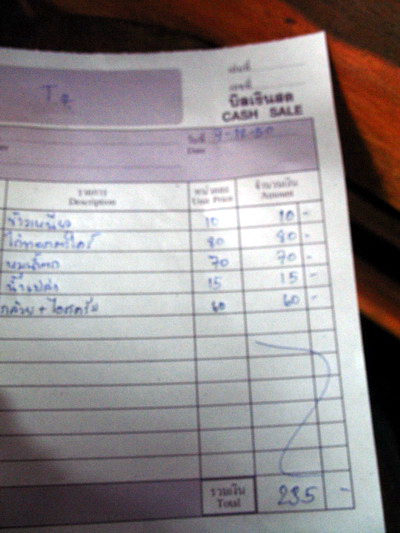 เล่มที่
เลขที่
บิลเงินสด
CASH SALE
วันที่ 9-12-50
Date
รายการ หน่วยละ จำนวนเงิน
Description Unit Price Amount
ข้าวเหนียว 10 10 -
ไก่ทอดตะไคร้ 80 80 -
หมูน้ำตก 70 70 -
น้ำเปล่า 15 15 -
กล้วย + ไอศครีม 60 60 -
รวมเงิน 235 -
Total